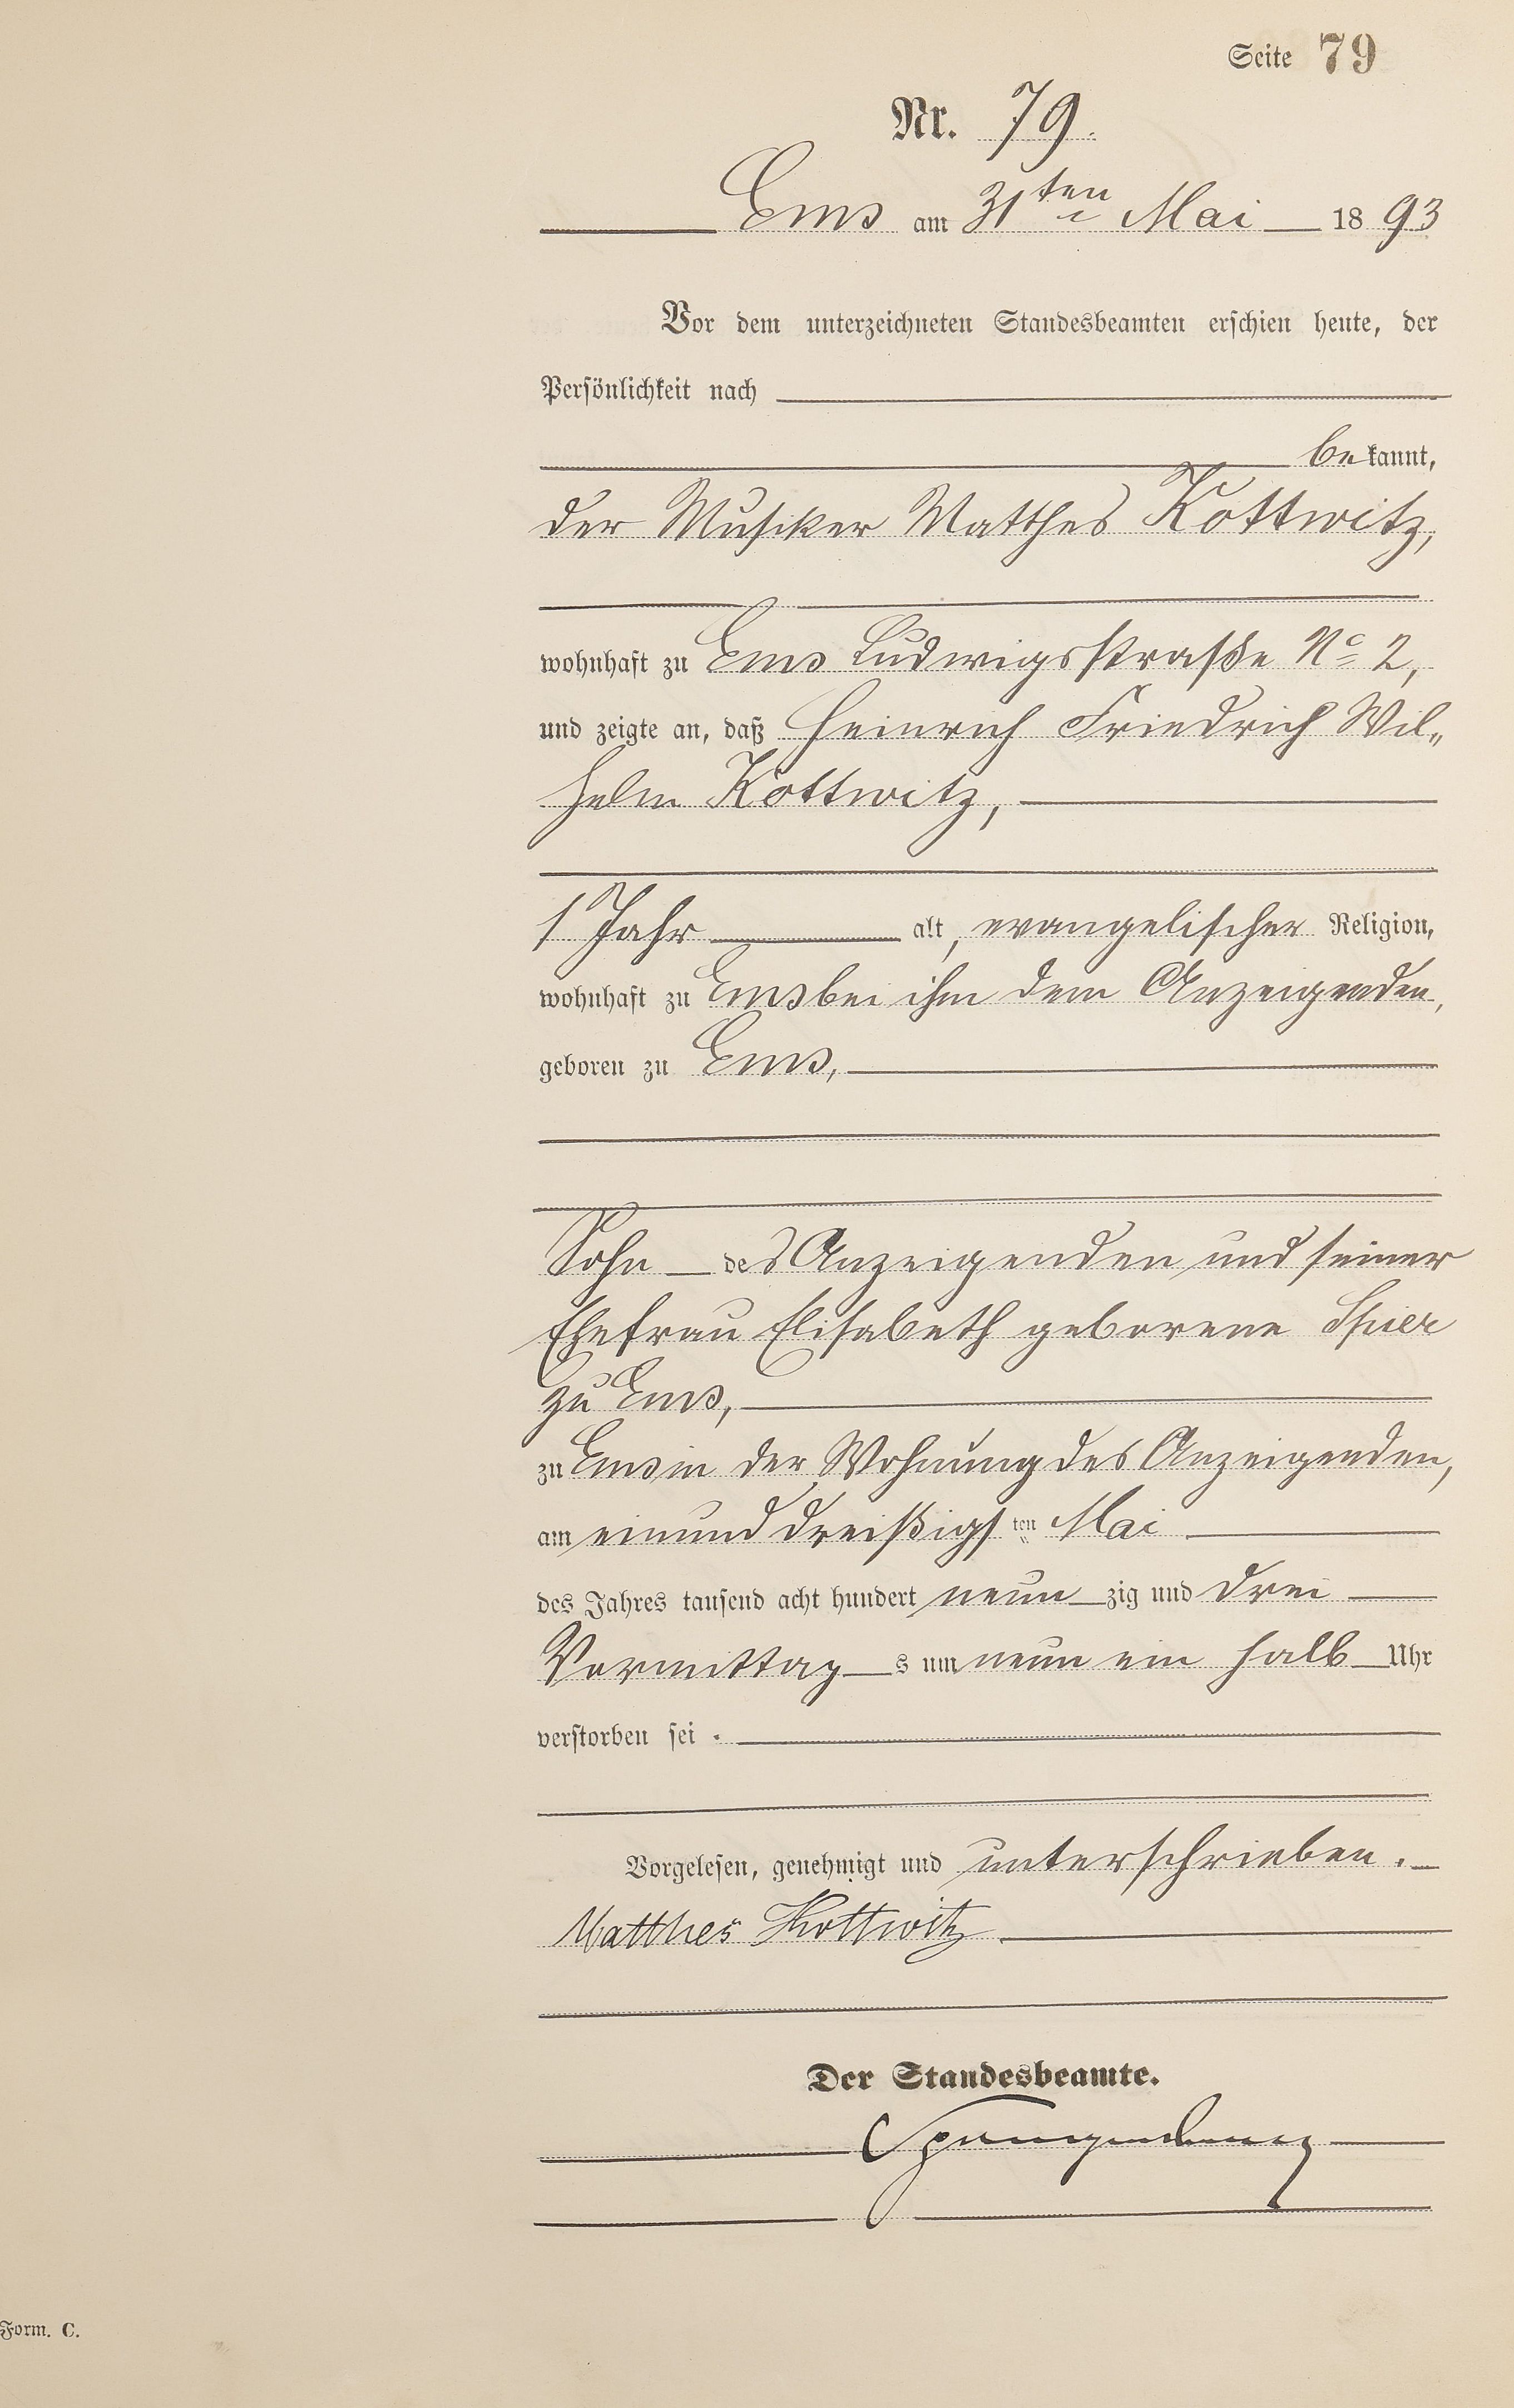 Seite 79
Nr. 79.
Ems am 31ten Mai 1893
Vor dem unterzeichneten Standesbeamten erschien heute, der
Persönlichkeit nach
bekannt,
der Musiker Matthes Kottwitz,
wohnhaft zu Ems Ludwigsstraße No 2,
und zeigte an, daß Heinrich Friedrich Wil„
helm Kottwitz,
1 Jahr alt, evangelischer Religion,
wohnhaft zu Ems bei ihm dem Anzeigenden,
geboren zu Ems,
Sohn des Anzeigenden und seiner
Ehefrau Elisabeth geborene Spier
zu Ems,
zu Ems in der Wohnung des Anzeigenden,
am einund dreißigsten Mai
des Jahres tausend acht hundert neunzig und drei
Vormittags um neun ein halb Uhr
verstorben sei.
Vorgelesen, genehmigt und unterschrieben.
Matthes Kottwitz
Der Standesbeamte.
Form. C.